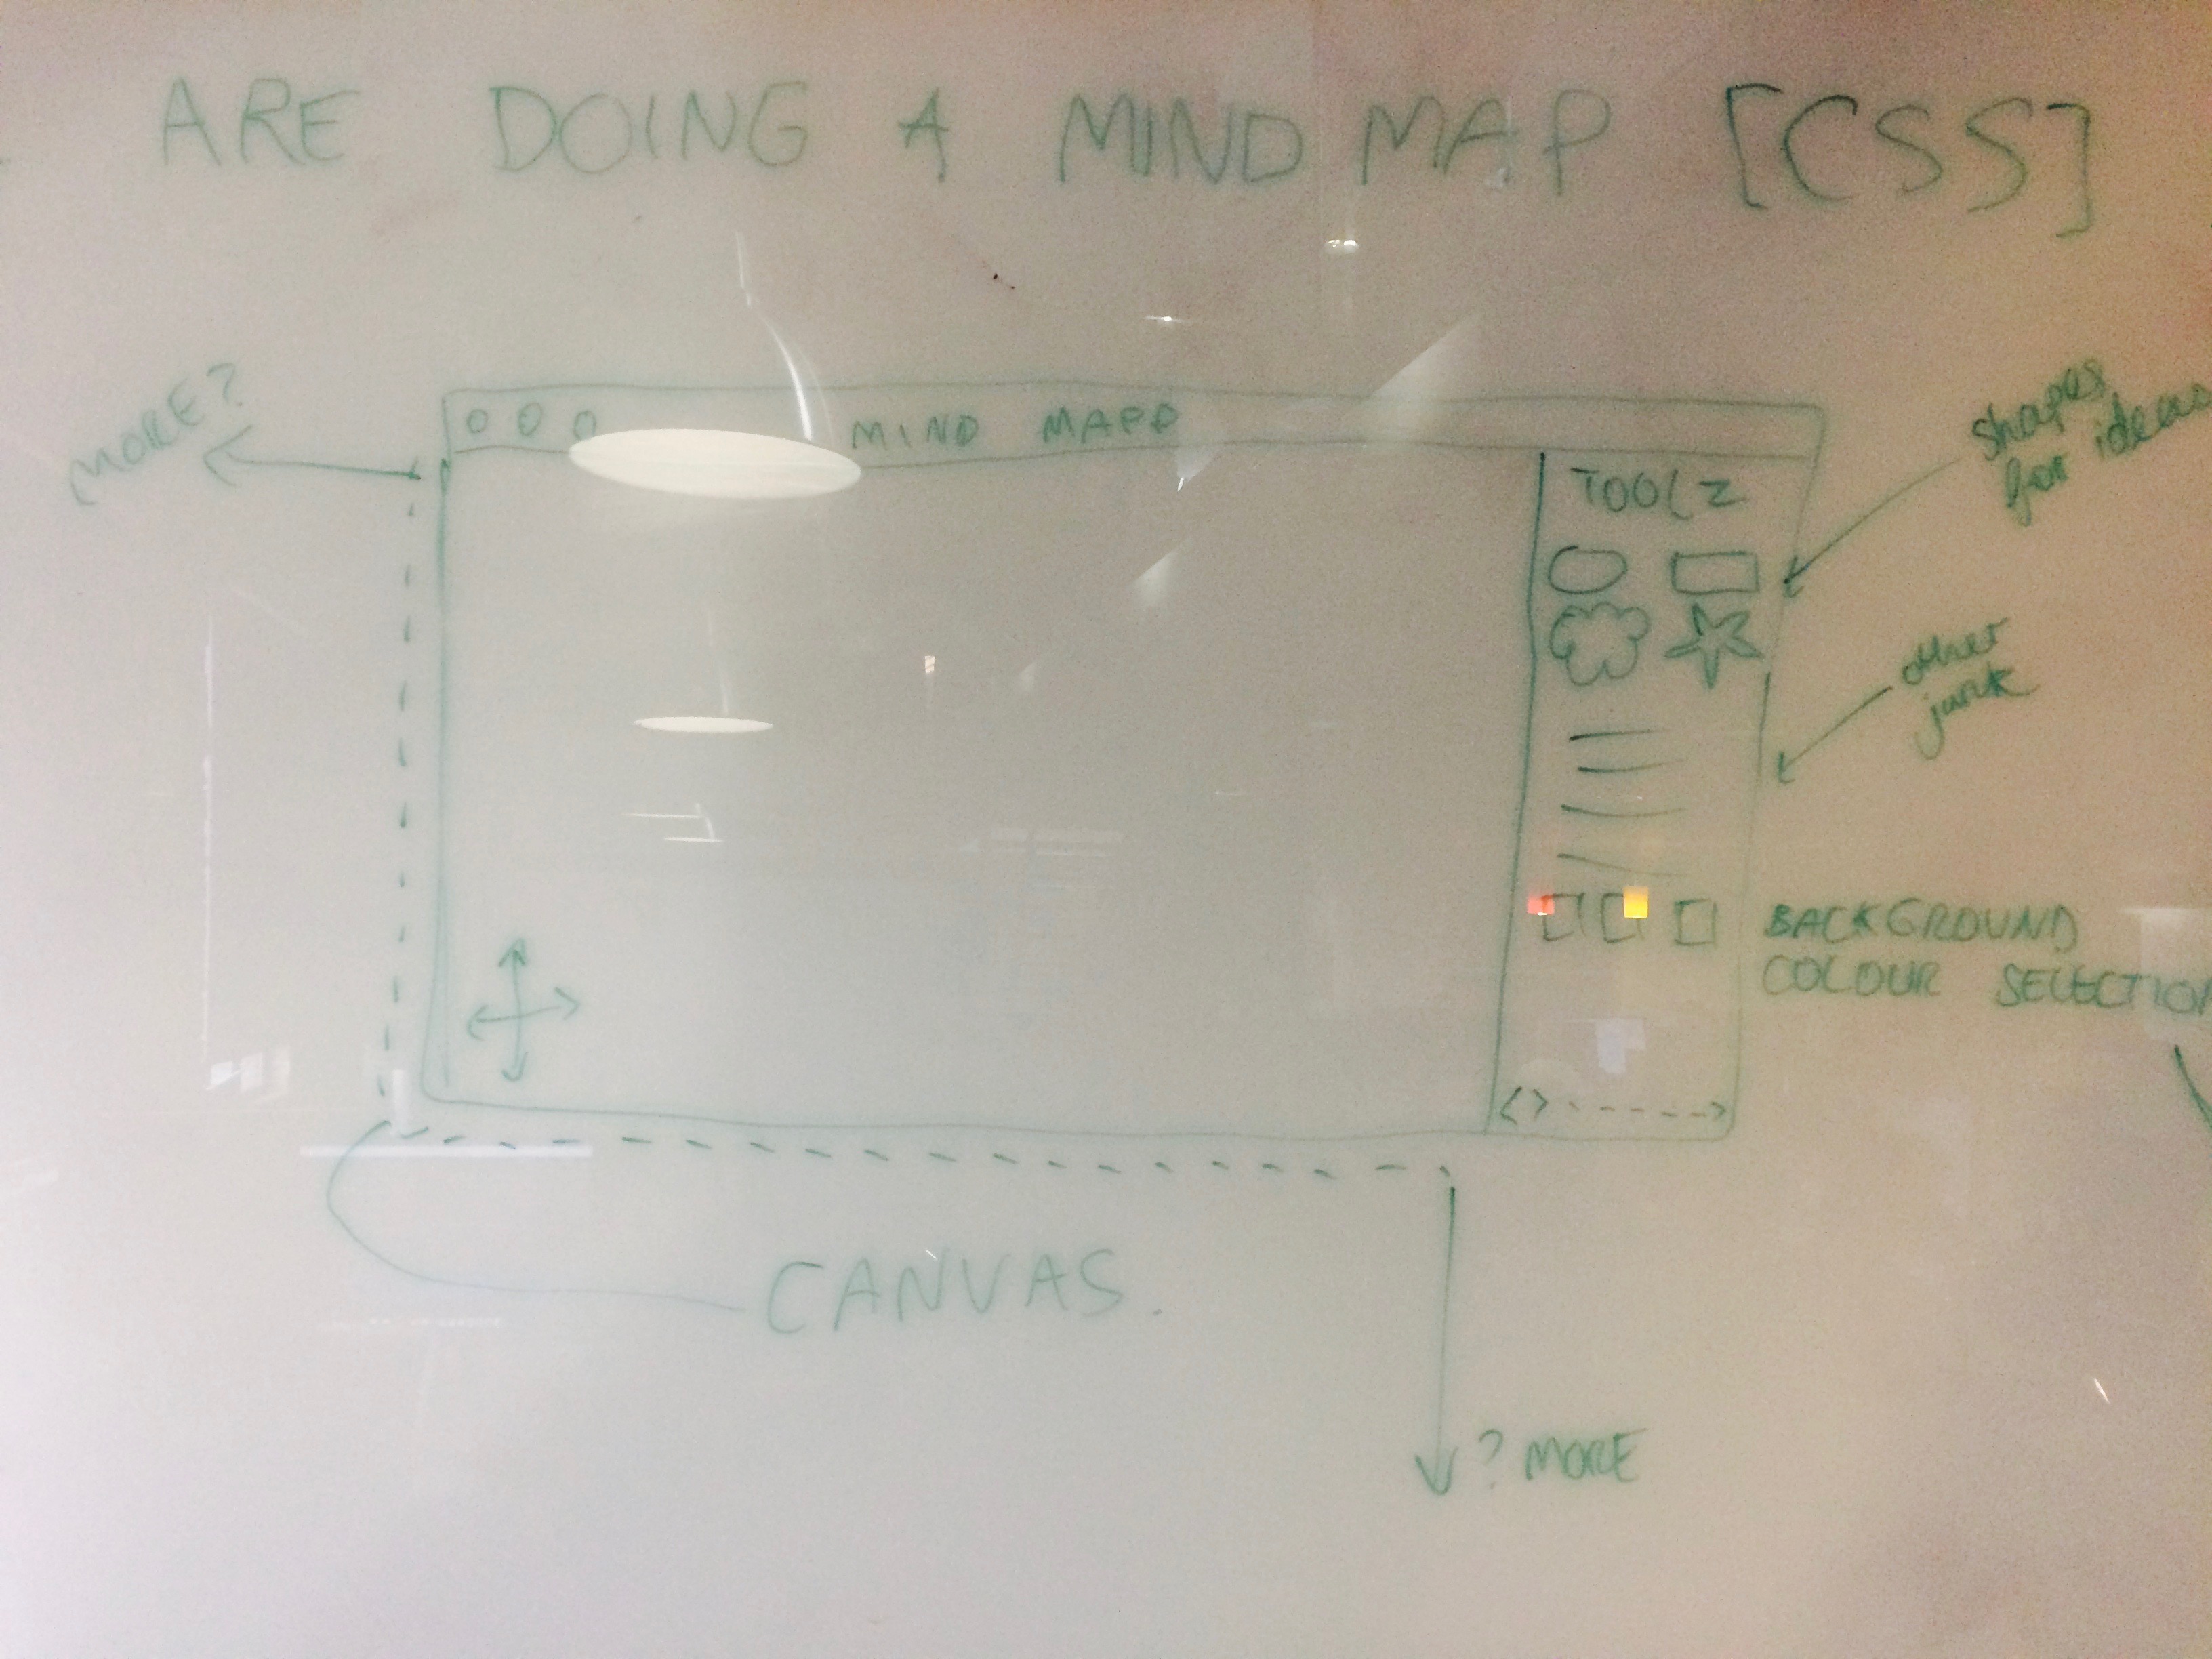 ARE DOING A MIND MAP [CSS]
MORE?
MIND MAPP
TOOLZ
shapes
for ideas
other
junk
BACKGROUND
COLOUR SELECTION
CANVAS.
? MORE